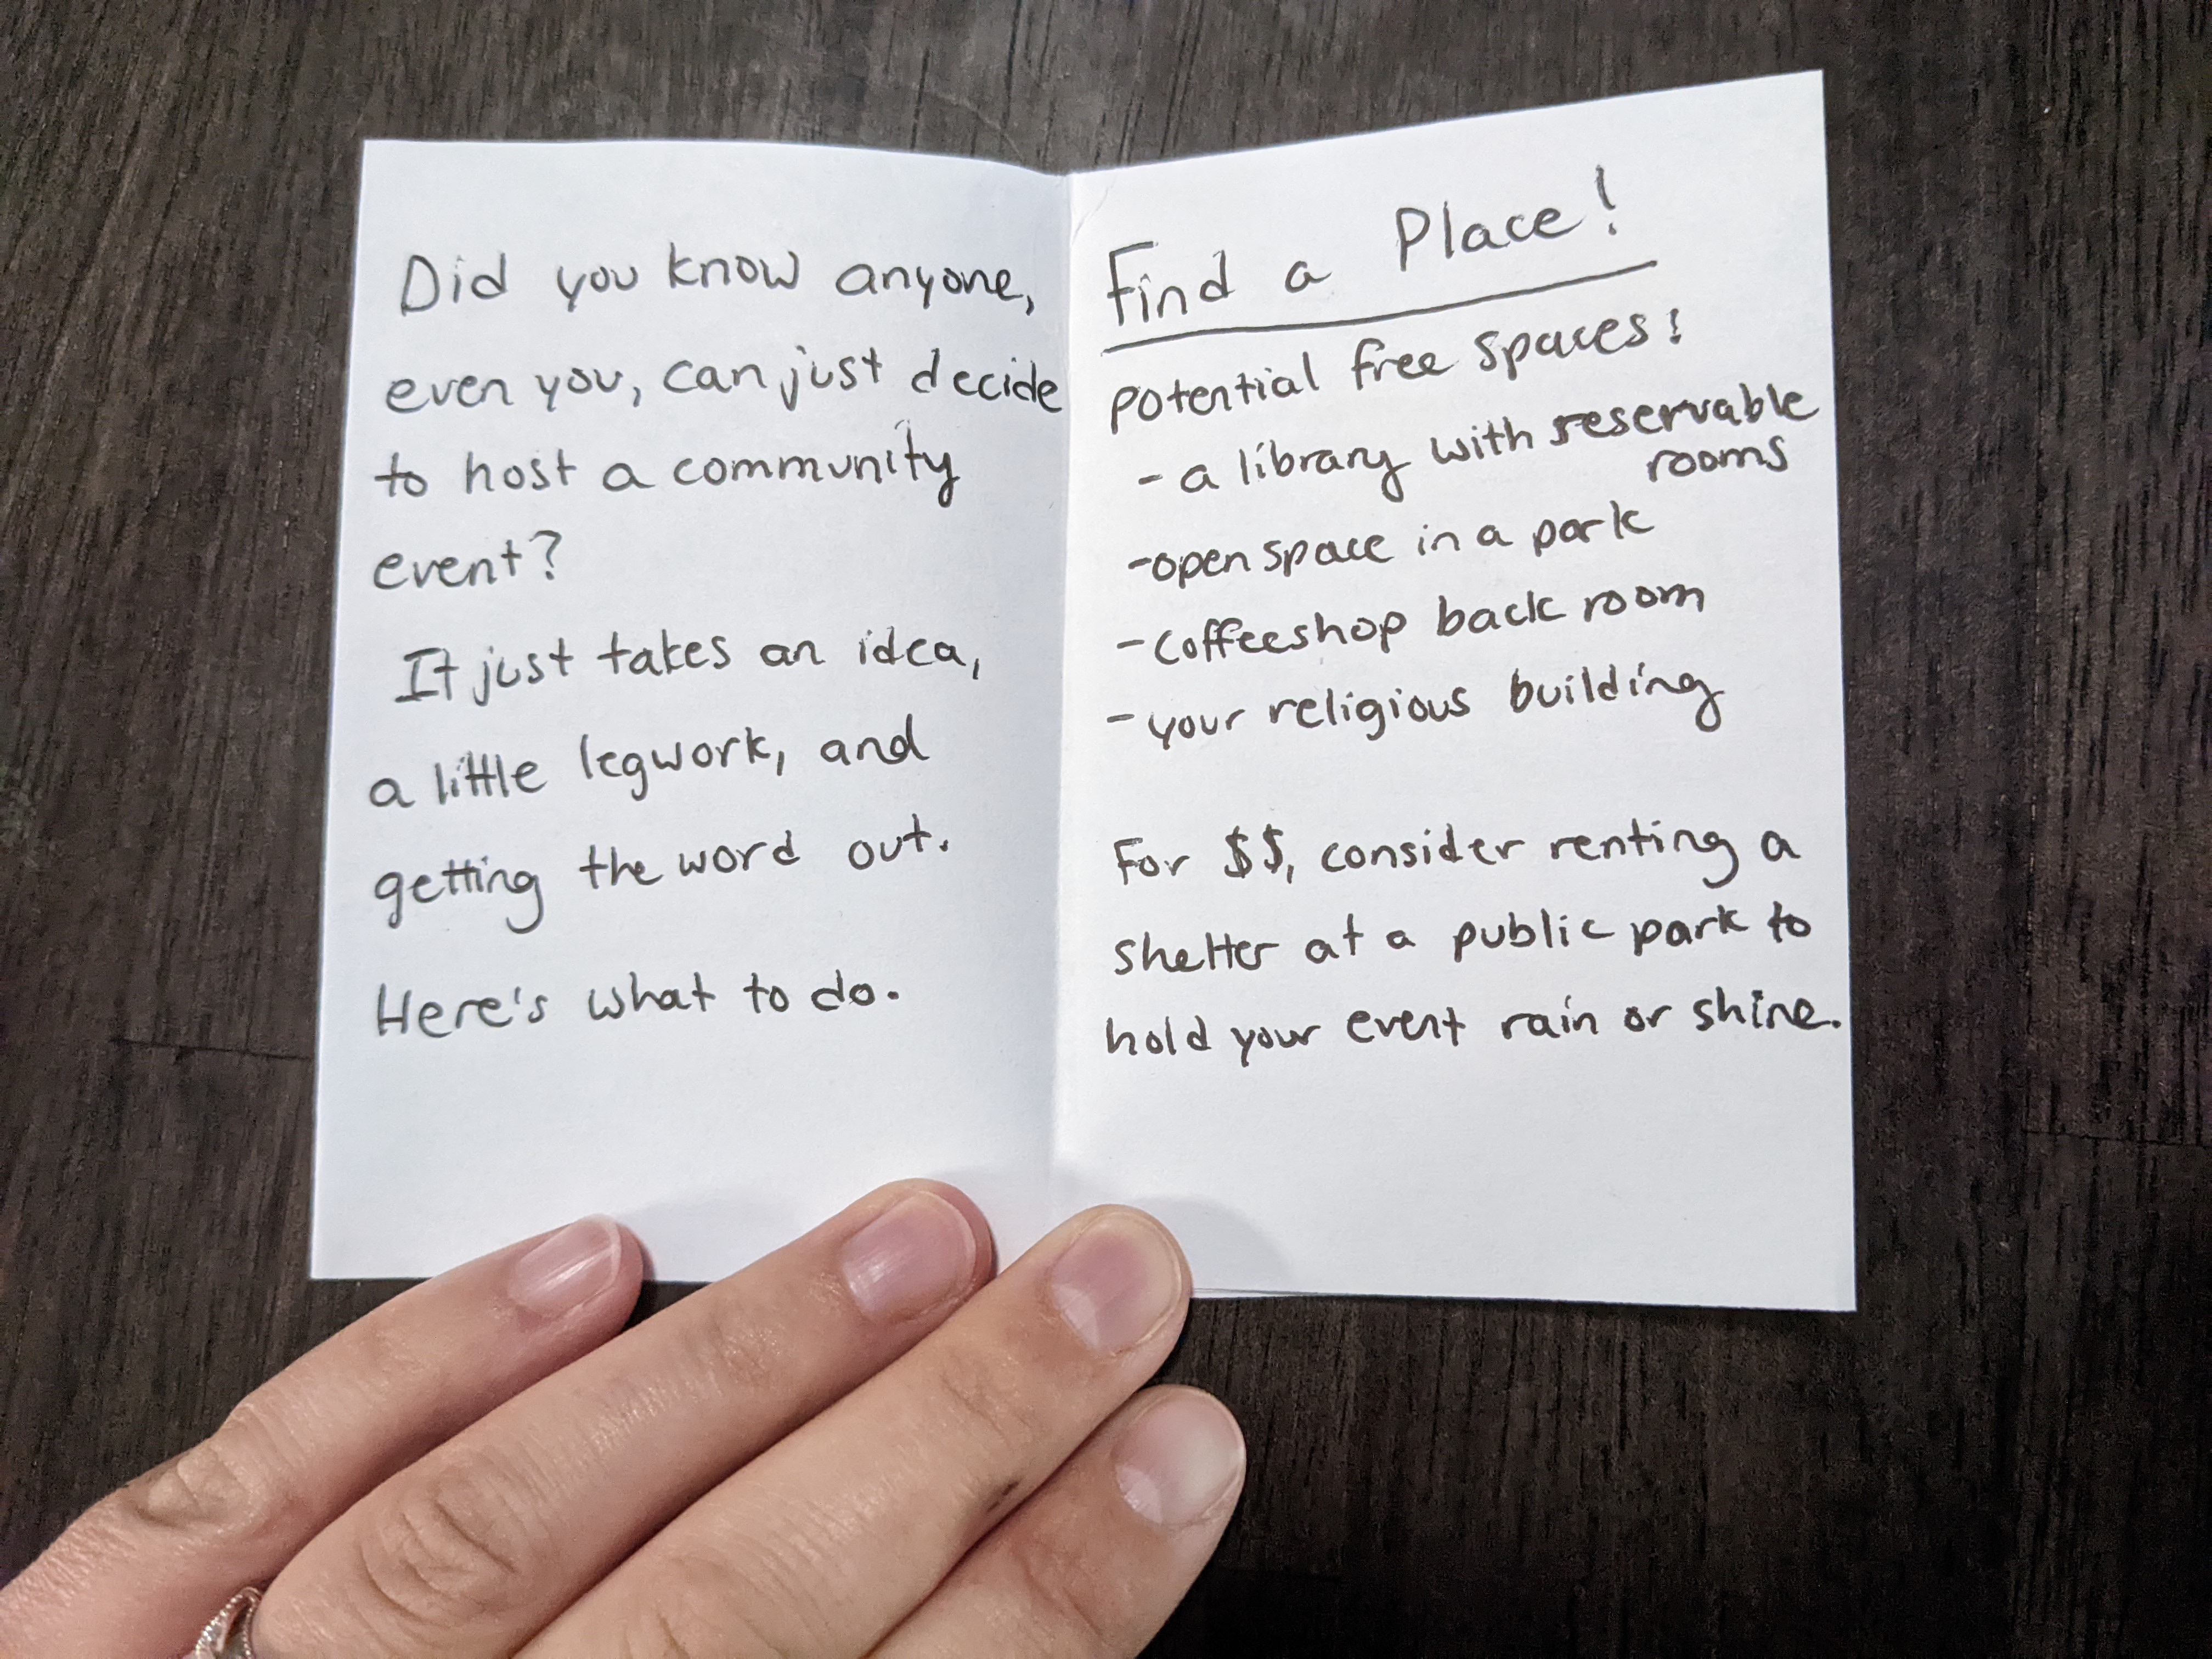 Did you know anyone,
even you, can just decide
to host a community
event?
It just takes an idea,
a little legwork, and
getting the word out.
Here's what to do.
Find a Place!
potential free spaces:
- a library with reservable
rooms
- open space in a park
- coffeeshop back room
- your religious building
For $$, consider renting a
shelter at a public park to
hold your event rain or shine.